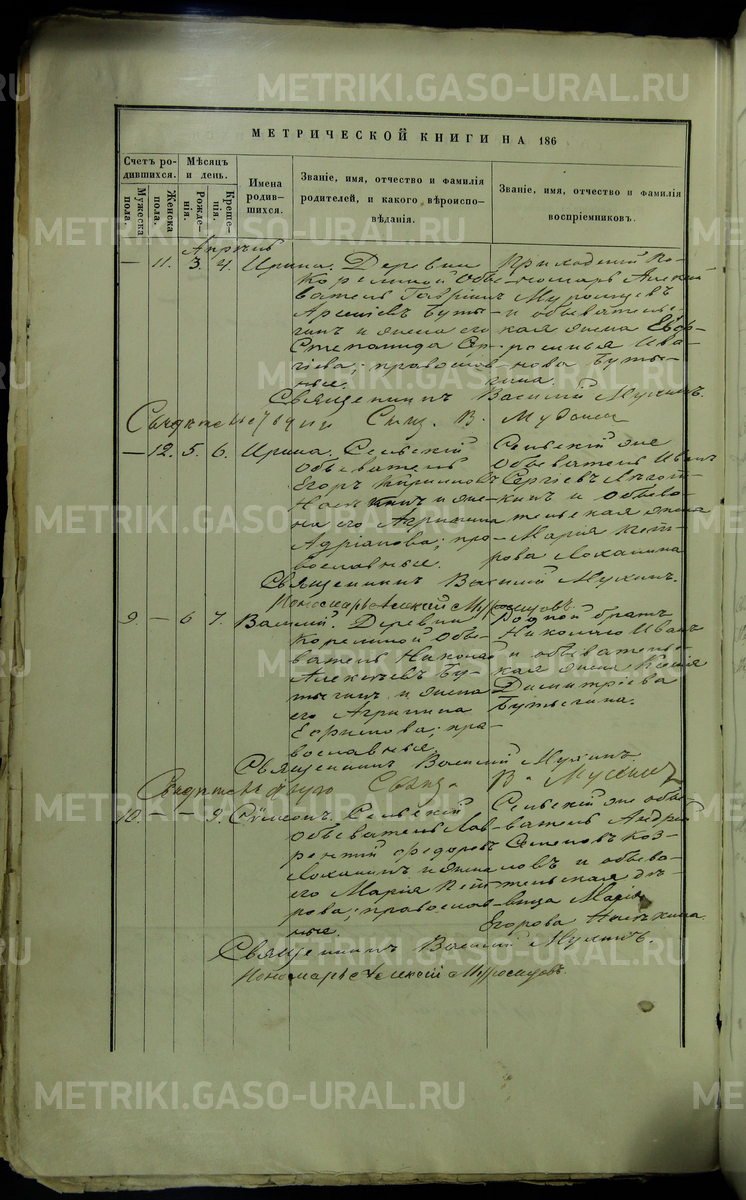 METRIKI.GASO-URAL.RU
МЕТРИЧЕСКОЙ КНИГИ НА 186
Счетъ родившихся.
Мужеска пола.
Женска пола.
Мѣсяцъ и день.
Рожденія.
Крещенія.
Имена родившихся.
Званіе, имя, отчество и фамилія родителей, и какого вѣроисповѣданія.
Званіе, имя, отчество и фамилія воспріемниковъ.
Апрѣль
— 11. 3. 4. Ирина. Деревни
Корелиной Обы-
ватель Гаврiилъ
Арсеніевъ Буты-
гинъ и жена его
Степанида Сер-
гіева; православ-
ные.
Приходскій По-
номарь Алексій
Муромцевъ
и обыватель-
ская жена Евф-
росинья Ива-
нова Буты-
гина.
Священникъ Василій Мухинъ.
— 12. 5. 6. Ирина. Сельскій
Обыватель
Егоръ Кириловъ
и же-
на его Агрипина
Адріанова; пра-
вославные.
Сельскій же
Обыватель Иванъ
Сергіевъ
и обыва-
тельская жена
Марія Пет-
рова Лоханина
Священникъ Василій Мухинъ.
Пономарь Алексій Муромцовъ.
9. — 6 7. Василій. Деревни
Корелиной Обы-
ватель Николай
Алексѣевъ Бу-
тыгинъ и жена
его Агрипина
Ефимова; пра-
вославные.
Родной братъ
Николаю Иванъ
и обыватель-
ская жена Ксенія
Димитріева
Бутыгина.
Священникъ Василій Мухинъ.
Свидѣтельствую Свящ. В. Мухинъ
10. — — 9. Сѵмеонъ. Сельскій
Обыватель Лав-
рентій Федоровъ
Лоханинъ и жена
его Марія Пет-
рова; православ-
ные.
Сельскій же обы-
ватель Андрей
Семеновъ Коз-
ловъ и обыва-
тельская дѣ-
вица Марія
Егорова
Священникъ Василій Мухинъ.
Пономарь Алексій Муромцовъ.